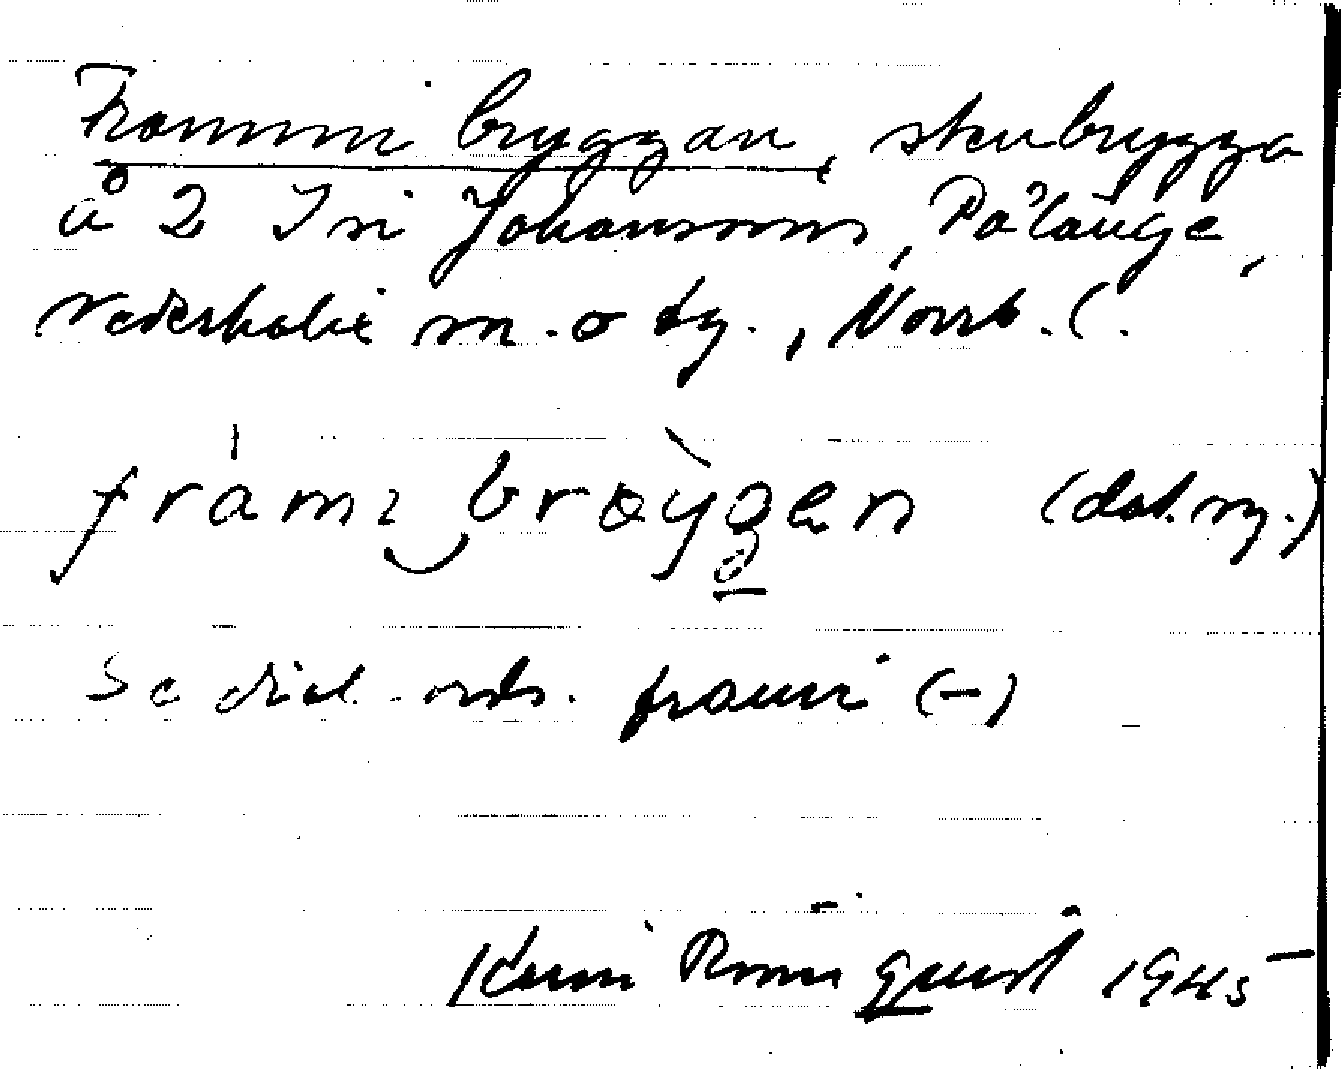 Frammi bryggan, stenbrygga
å 2 Isi Johanssons, Pålänge,
Nederkalix sn. o tg., Norrb. l.
frámi brøỳgen (dat. ng.)
Se dial. ords. frammi (–)
Karin Rönnquist 1945